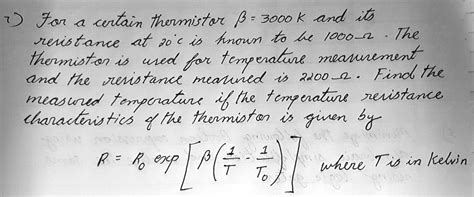 2) For a certain thermistor β = 3000 K and its
resistance at 20°C is known to be 1000 Ω. The
thermistor is used for temperature measurement
and the resistance measured is 2200 Ω. Find the
measured temperature if the temperature resistance
characteristics of the thermistor is given by
R = R₀ exp [β(1/T - 1/T₀)] where T is in Kelvin